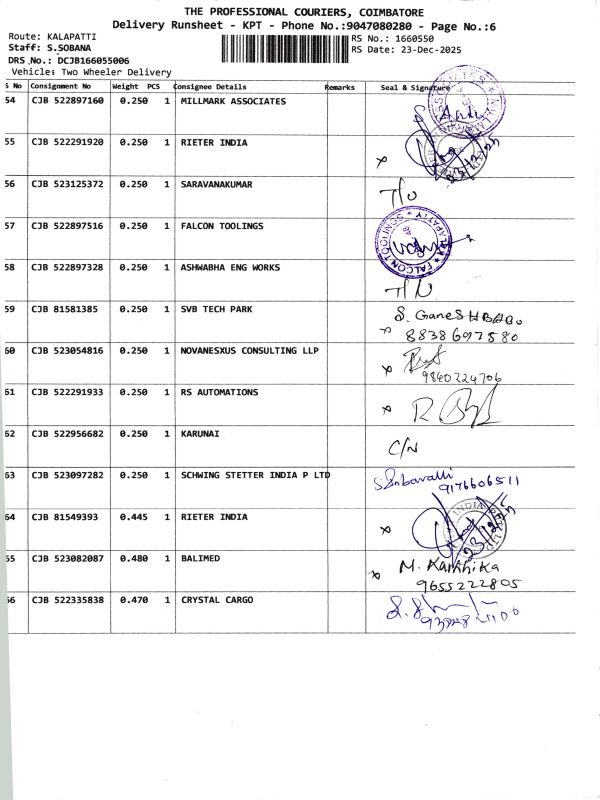 THE PROFESSIONAL COURIERS, COIMBATORE
Delivery Runsheet - KPT - Phone No.:9047080280 - Page No.:6
Route: KALAPATTI
RS No.: 1660550
Staff: S.SOBANA
RS Date: 23-Dec-2025
DRS No.: DCJB166055006
Vehicle: Two Wheeler Delivery
S No Consignment No Weight PCS Consignee Details Remarks Seal & Signature
54 CJB 522897160 0.250 1 MILLMARK ASSOCIATES
55 CJB 522291920 0.250 1 RIETER INDIA
56 CJB 523125372 0.250 1 SARAVANAKUMAR T/O
57 CJB 522897516 0.250 1 FALCON TOOLINGS FALCON TOOLINGS
58 CJB 522897328 0.250 1 ASHWABHA ENG WORKS
59 CJB 81581385 0.250 1 SVB TECH PARK S. GaneSHBABu
8838697580
60 CJB 523054816 0.250 1 NOVANESXUS CONSULTING LLP
9840224706
61 CJB 522291933 0.250 1 RS AUTOMATIONS
62 CJB 522956682 0.250 1 KARUNAI C/N
63 CJB 523097282 0.250 1 SCHWING STETTER INDIA P LTD
9176606511
64 CJB 81549393 0.445 1 RIETER INDIA
23/12/25
55 CJB 523082087 0.480 1 BALIMED M. Karthika
9655222805
56 CJB 522335838 0.470 1 CRYSTAL CARGO